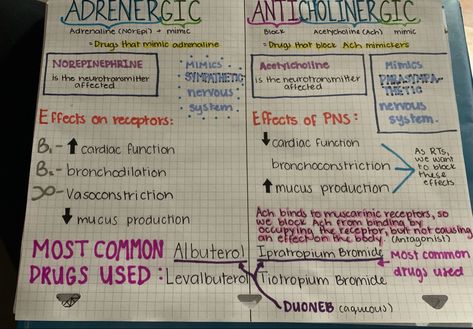 ADRENERGIC
Adrenaline (NorEpi) + mimic
= Drugs that mimic adrenaline
NOREPINEPHRINE
is the neurotransmitter
affected
Mimics
SYMPATHETIC
nervous
system.
Effects on receptors:
B₁- ↑ cardiac function
B₂- bronchodilation
∝- Vasoconstriction
↓ mucus production
MOST COMMON
DRUGS USED:
Albuterol
Levalbuterol
ANTICHOLINERGIC
Block Acetylcholine (Ach) mimic
= Drugs that block Ach mimickers
Acetylcholine
is the neurotransmitter
affected
Mimics
PARASYMPA-
THETIC
nervous
system.
Effects of PNS:
↓ cardiac function
bronchoconstriction
↑ mucus production
As RTs,
we want
to block
these
effects.
Ach binds to muscarinic receptors, so
we block Ach from binding by
occupying the receptor, but not causing
an effect on the body. (Antagonist)
Ipratropium Bromide
Tiotropium Bromide
most common
drugs used
DUONEB (aqueous)